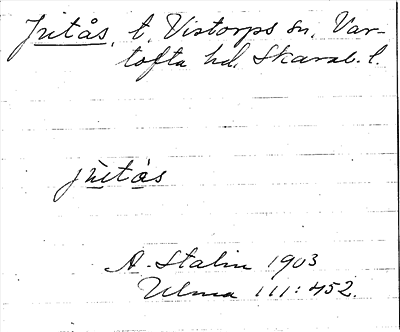 Jutås, t. Vistorps sn, Var-
tofta hd, Skarab. l.
jùtås
A. Stalin 1903
Ulma 111:452.